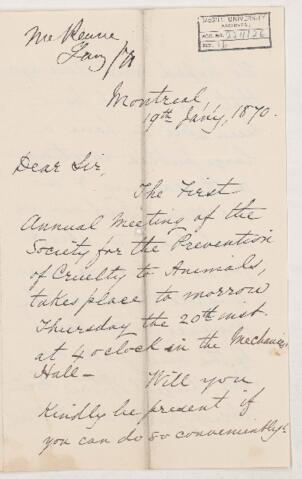 McGILL UNIVERSITY
ARCHIVES
ACC. NO.
REF.
Montreal,
19th Jan'y, 1870.
Dear Sir,
The First
Annual Meeting of the
Society for the Prevention
of Cruelty to Animals,
takes place to morrow
Thursday the 20th inst.
at 4 o'clock in the Mechanics
Hall – Will you
Kindly be present if
you can do so conveniently.